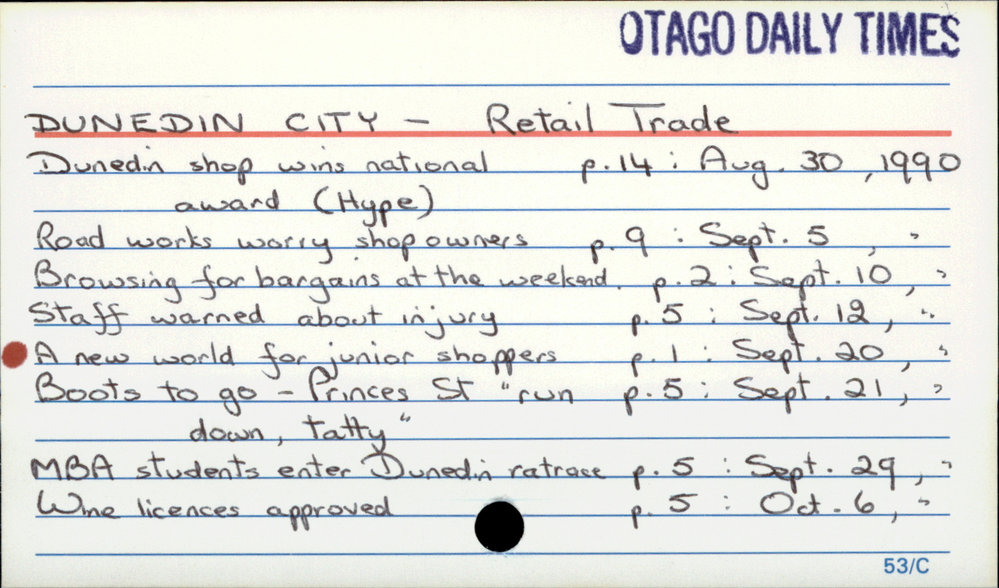 OTAGO DAILY TIMES
DUNEDIN CITY - Retail Trade
Dunedin shop wins national p.14 : Aug. 30, 1990
award (Hype)
Road works worry shopowners p.9 : Sept. 5, "
Browsing for bargains at the weekend. p.2 : Sept. 10, "
Staff warned about injury p.5 : Sept. 12, "
A new world for junior shoppers p.1 : Sept. 20, "
Boots to go - Princes St "run p.5 : Sept. 21, "
down, tatty"
MBA students enter Dunedin ratrace p.5 : Sept. 29, "
Wine licences approved p.5 : Oct. 6, "
53/C